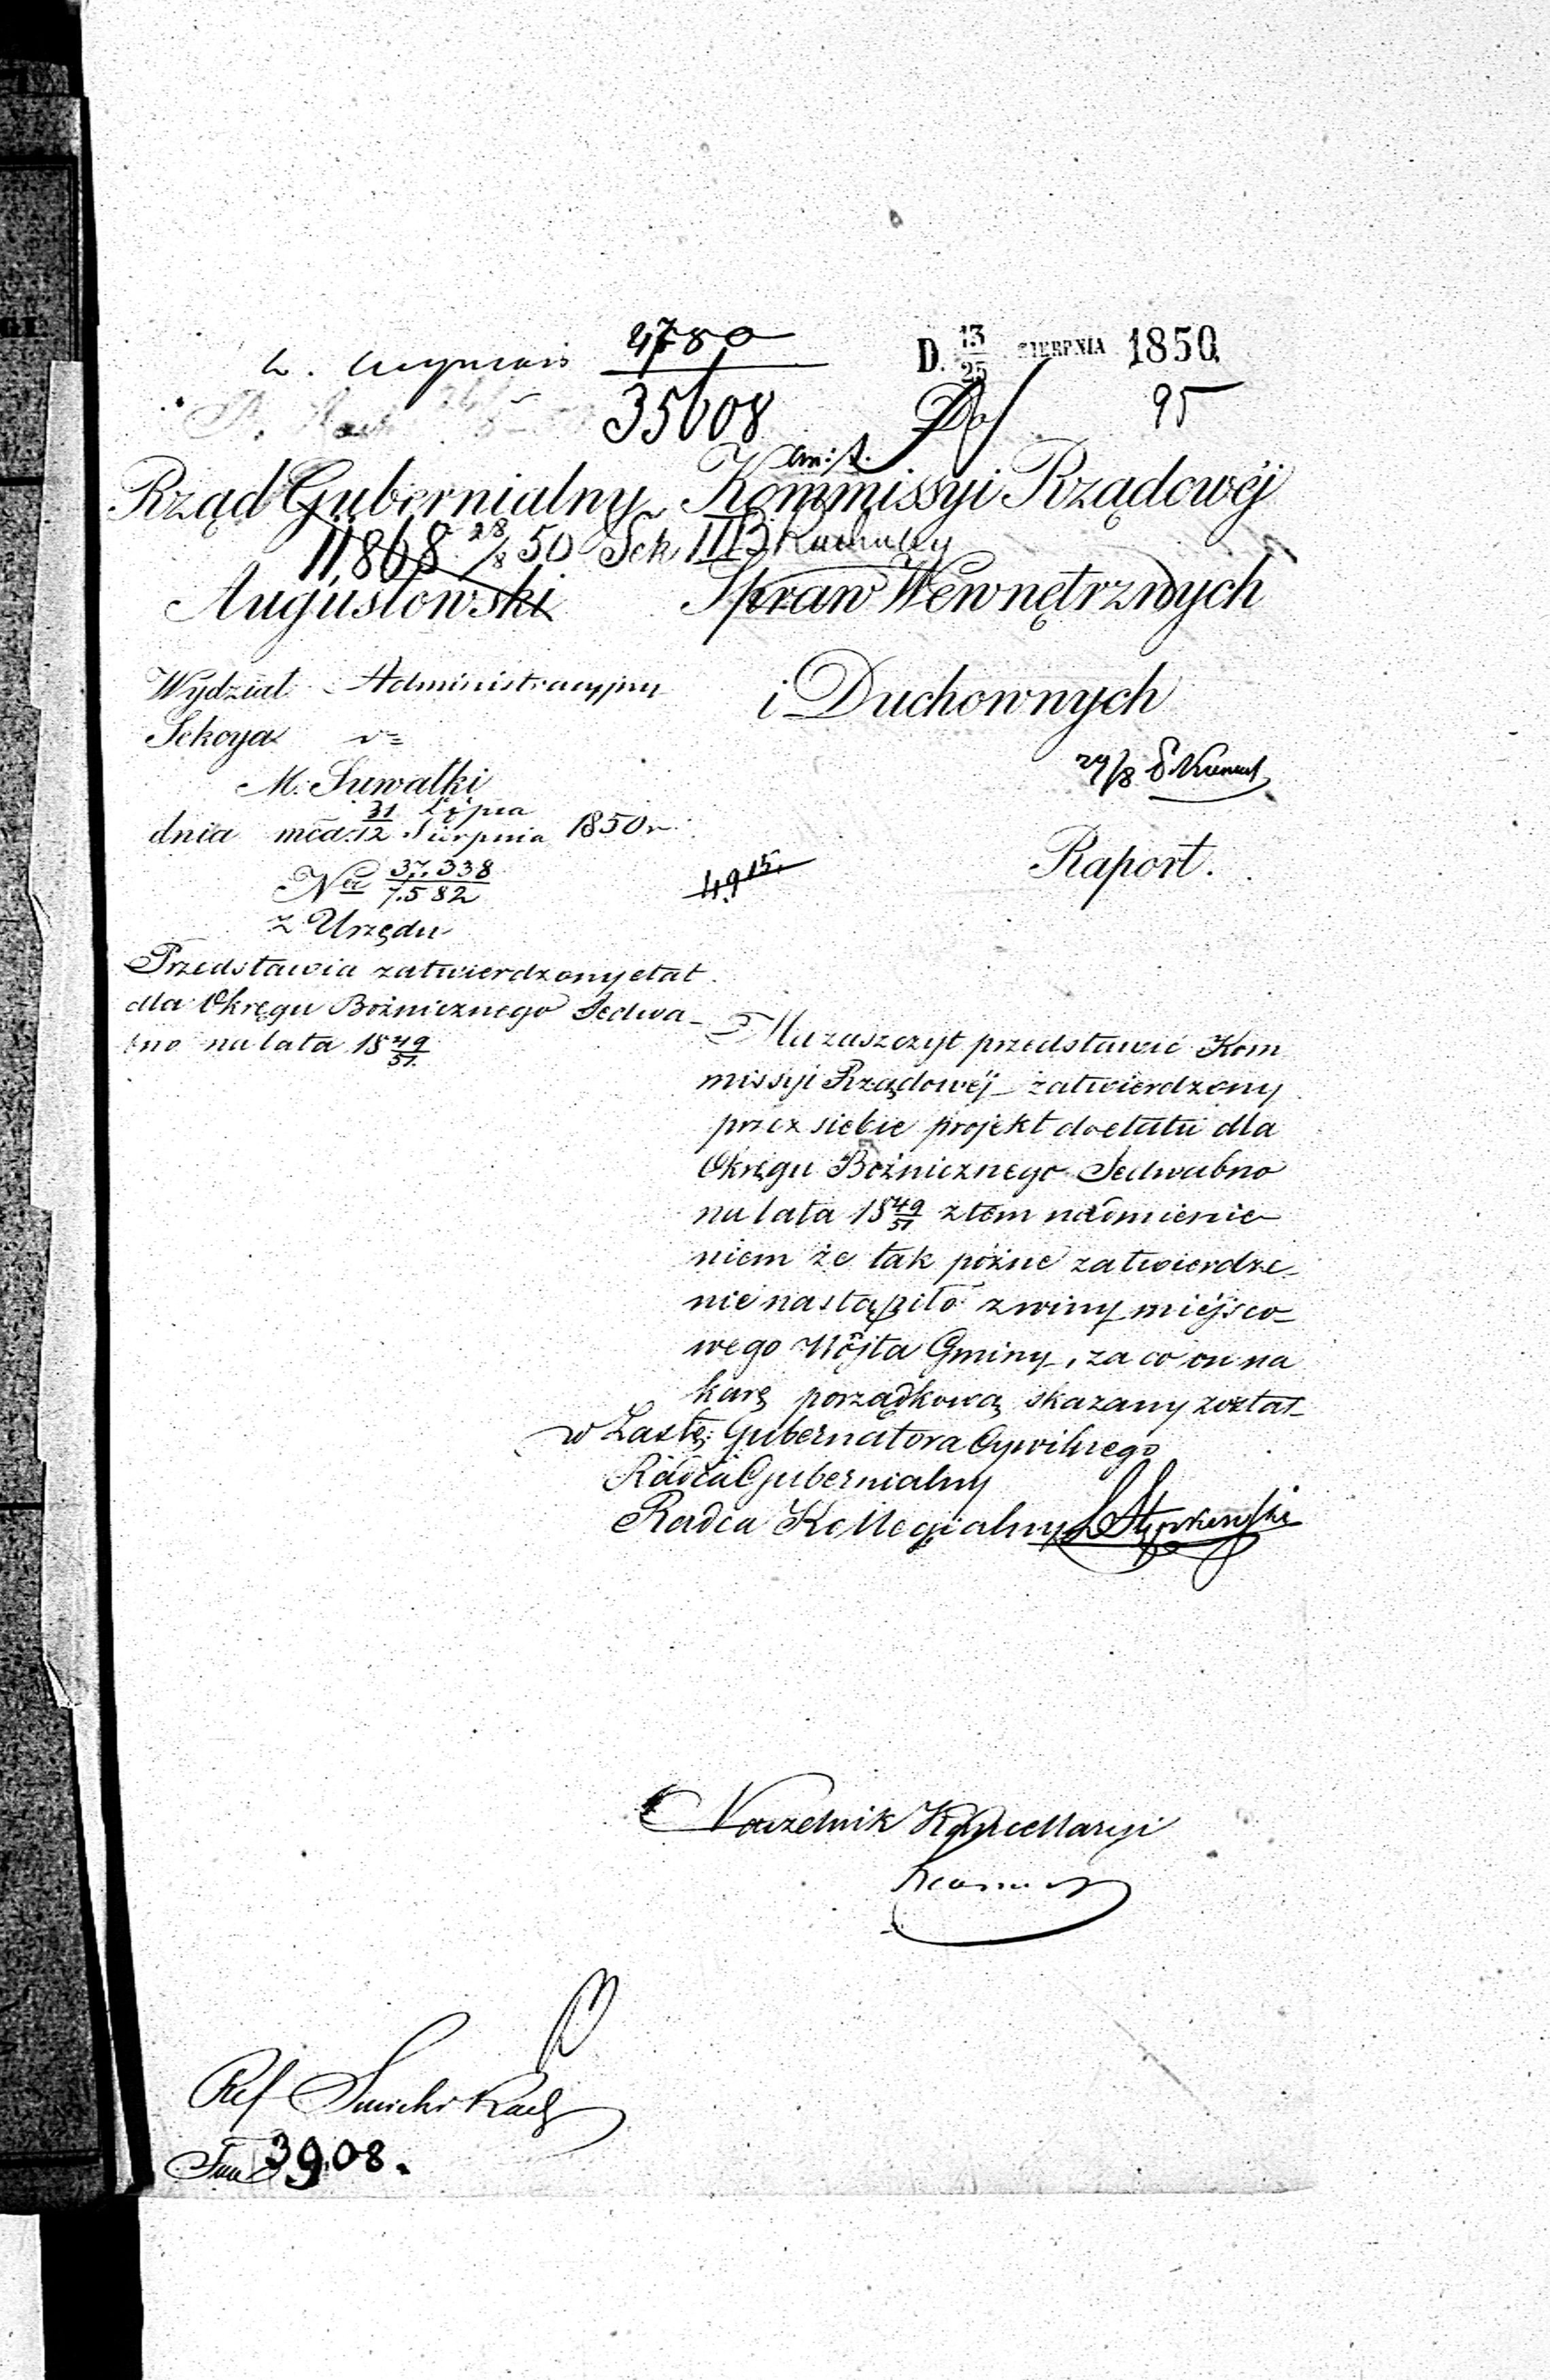 4780
35608
D. 13/25 SIERPNIA 1850
95
Rząd Gubernialny
Augustowski
11868 28/8 50 Sek III B
Kommissyi Rządowéj
Spraw Wewnętrznych
i Duchownych
Wydział Administracyjny
Sekcya
M. Suwałki
dnia 31 Lipca / 12 Sierpnia mca 1850 r.
No 37.338 / 7.582
z Urzędu
29/8
49 15.
Raport.
Przedstawia zatwierdzony etat
dla Okręgu Bożnicznego Jedwa-
bno na lata 18 49/51.
Ma zaszczyt przedstawić Kom
missyi Rządowéj zatwierdzony
przez siebie projekt do etatu dla
Okręgu Bożnicznego Jedwabno
na lata 18 49/51 z tem nadmienie-
niem że tak późne zatwierdze-
nie nastąpiło z winy miéjsco-
wego Wójta Gminy, za co on na
karę porządkową skazany został
w Zastę: Gubernatora Cywilnego
Radca Gubernialny
Radca Kollegialny
Naczelnik Kancellaryi
Ref
3908.